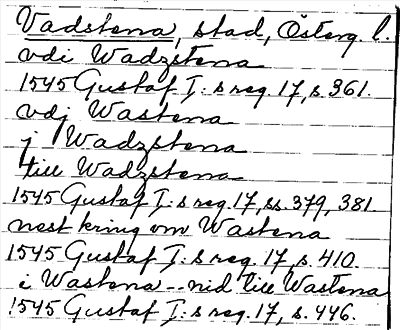 Vadstena, stad, Österg. l.
vdi Wadzstena
1545 Gustaf I:s reg. 17, s. 361.
vdj Wastena
j Wadzstena
till Wadzstena
1545 Gustaf I:s reg. 17, ss. 379, 381
nest kring om Wastena
1545 Gustaf I:s reg. 17, s. 410.
i Wastena -- nid till Wastena
1545 Gustaf I:s reg. 17, s. 446.